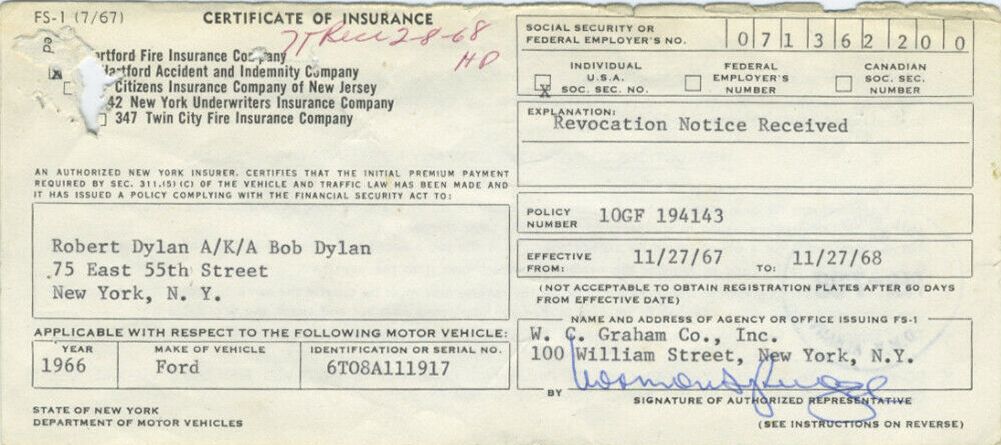 FS-1 (7/67)
CERTIFICATE OF INSURANCE
ed
artford Fire Insurance Company
Hartford Accident and Indemnity Company
Citizens Insurance Company of New Jersey
42 New York Underwriters Insurance Company
347 Twin City Fire Insurance Company
2-8-68
HD
AN AUTHORIZED NEW YORK INSURER. CERTIFIES THAT THE INITIAL PREMIUM PAYMENT
REQUIRED BY SEC. 311.(5) (C) OF THE VEHICLE AND TRAFFIC LAW HAS BEEN MADE AND
IT HAS ISSUED A POLICY COMPLYING WITH THE FINANCIAL SECURITY ACT TO:
Robert Dylan A/K/A Bob Dylan
75 East 55th Street
New York, N. Y.
APPLICABLE WITH RESPECT TO THE FOLLOWING MOTOR VEHICLE:
YEAR MAKE OF VEHICLE IDENTIFICATION OR SERIAL NO.
1966 Ford 6T08A111917
STATE OF NEW YORK
DEPARTMENT OF MOTOR VEHICLES
SOCIAL SECURITY OR
FEDERAL EMPLOYER'S NO.
0 7 1 3 6 2 2 0 0
INDIVIDUAL
U.S.A.
SOC. SEC. NO.
X
FEDERAL
EMPLOYER'S
NUMBER
CANADIAN
SOC. SEC.
NUMBER
EXPLANATION:
Revocation Notice Received
POLICY
NUMBER
10GF 194143
EFFECTIVE
FROM:
11/27/67 TO: 11/27/68
(NOT ACCEPTABLE TO OBTAIN REGISTRATION PLATES AFTER 60 DAYS
FROM EFFECTIVE DATE)
NAME AND ADDRESS OF AGENCY OR OFFICE ISSUING FS-1
W. C. Graham Co., Inc.
100 William Street, New York, N.Y.
BY
SIGNATURE OF AUTHORIZED REPRESENTATIVE
(SEE INSTRUCTIONS ON REVERSE)